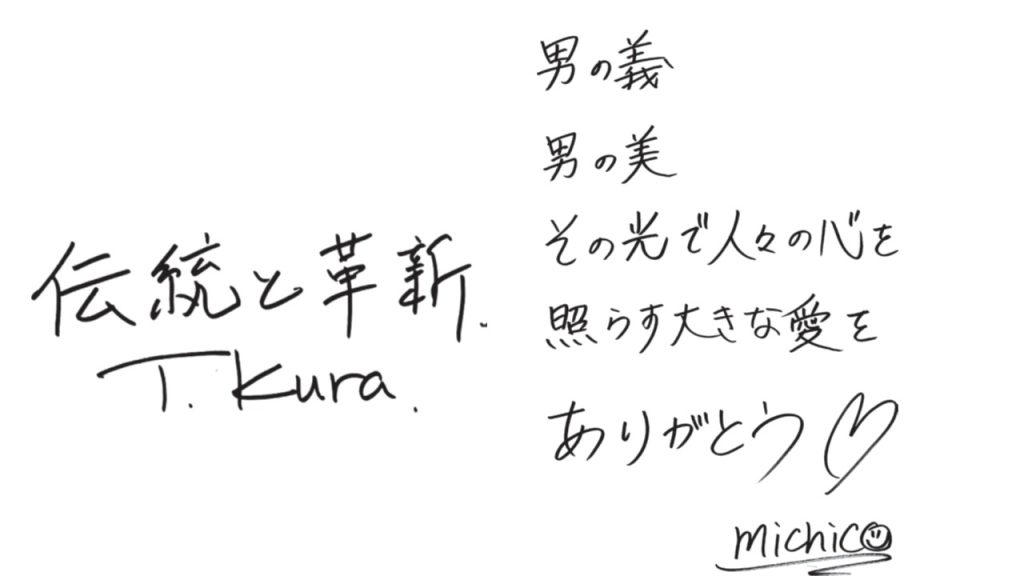 伝統と革新.
T. Kura.
男の義
男の美
その光で人々の心を
照らす大きな愛を
ありがとう♡
michico